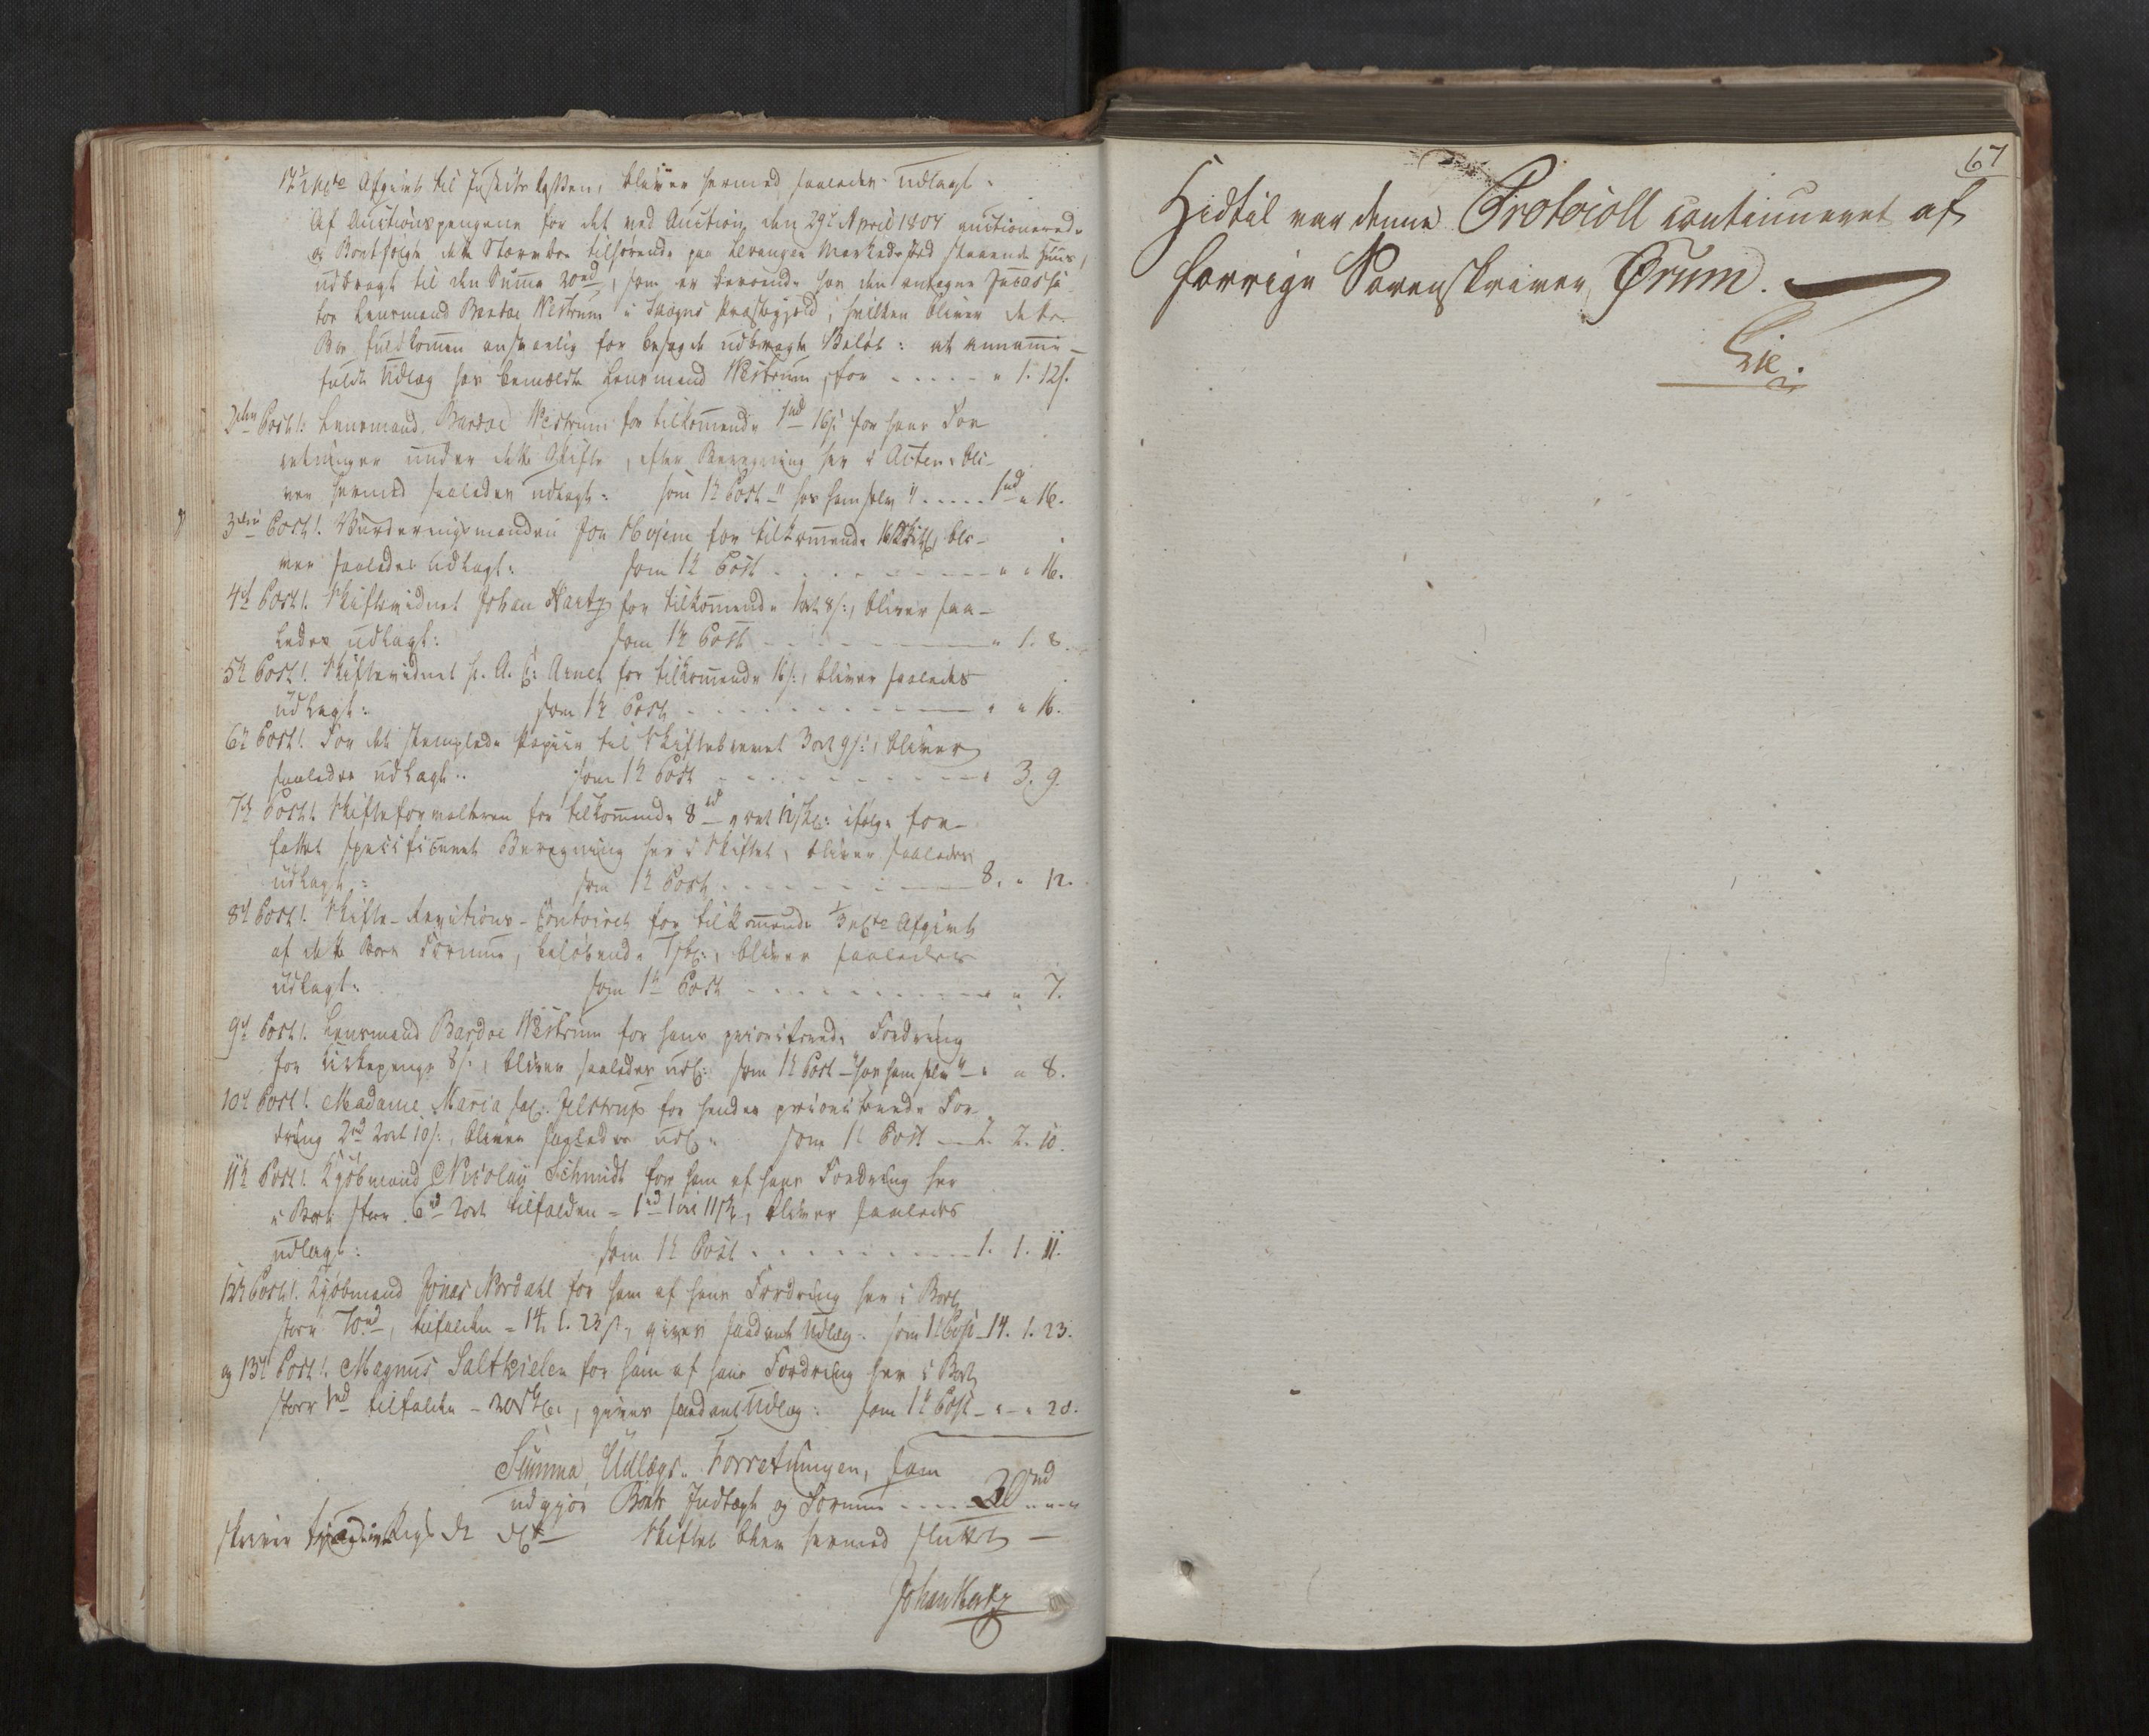 Afgivt til Justits Cassen, bliver hermed saaledes udlagt:
Af Auctionspengene for det ved Auction den 29de April 1804 auctionerede
og bortsolgte dette Stervboe tilhørende paa Levanger Markedssted staaende Huus,
udbragt til den Summa 20rd, som er beroende hos den antagne Incassa-
tor Lensmand Bardoe Westrum i Skogns Præstegjeld; hvilken bliver dette
Boe fuldkommen ansvarlig for besagde udbragte Beløb: at annamme
fuldt Udlæg hos bemeldte Lensmand Westrum, for - - - - " 1. 12s.
2den Post! Lensmand Bardoe Westrum for tilkommende 1rd 16s: for hans For-
retninger under dette Skifte, efter Beregning her i Acten, bli-
ver hermed saaledes udlagt: som 1te Post - " hos ham selv " . . . . . 1rd " 16.
3die Post! Vurderingsmanden Jon Mojem for tilkommende 16 Skill, bli-
ver saaledes udlagt: som 1te Post - - - - - " " 16.
4de Post! Skiftevidnet Johan Hartz for tilkommende 1ort 8s:, bliver saa-
ledes udlagt: som 1te Post - - - - " 1. 8.
5te Post! Skiftevidnet H. A. C: Arnet for tilkommende 16s:, bliver saaledes
udlagt: som 1te Post - - - - " " 16.
6te Post! For det stemplede Papiir til Skiftebrevet 3ort 9s:, bliver
saaledes udlagt: som 1te Post - - - - " 3. 9.
7de Post! Skifteforvalteren for tilkommende 8rd " ort 12sk: ifølge for-
fattet specificeret Beregning her i Skiftet, bliver saaledes
udlagt: som 1te Post - - - - 8. " 12.
8de Post! Skifte-Revitions-Contoiret for tilkommende 1/3 pCto Afgivt
af dette Boes Formue, beløbende 7sk:, bliver saaledes
udlagt: som 1te Post - - - - " " 7.
9de Post! Lensmand Bardoe Westrum for hans prioriterede Fordring
for Kirkepenge 8s:, bliver saaledes udl: som 1te Post - "hos ham selv" - " " 8.
10de Post! Madame Maria sal: Jelstrup for hendes prioriterede For-
dring 2rd 2ort 10s:, bliver saaledes udl: som 1te Post - 2. 2. 10.
11te Post! Kjøbmand Nicolay Schmidt for ham af hans Fordring her
i Boet stor 6rd 2ort tilfalden = 1rd 1ort 11sk, bliver saaledes
udlagt: som 1te Post . . . . . 1. 1. 11.
12te Post! Kjøbmand Jonas Nordahl for ham af hans Fordring her i Boet
stor 70rd, tilfalden = 14. 1. 23s:, gives saadant Udlæg: som 1te Post - 14. 1. 23.
og 13de Post! Magnus Saltkielen for ham af hans Fordring her i Boet
stor 1rd tilfalden - 20sk:, gives saadant Udlæg: som 1te Post - " - " 20.
Summa Udlægs-Forretningen, som
udgjør Boets Indtægt og Formue - - - - 30rd " - "
Skiftet blev hermed sluttet -
Johan Hartz
67
Hidtil var denne Protocoll continueret af
forrige Sorenskriver Ørum.
Lie.